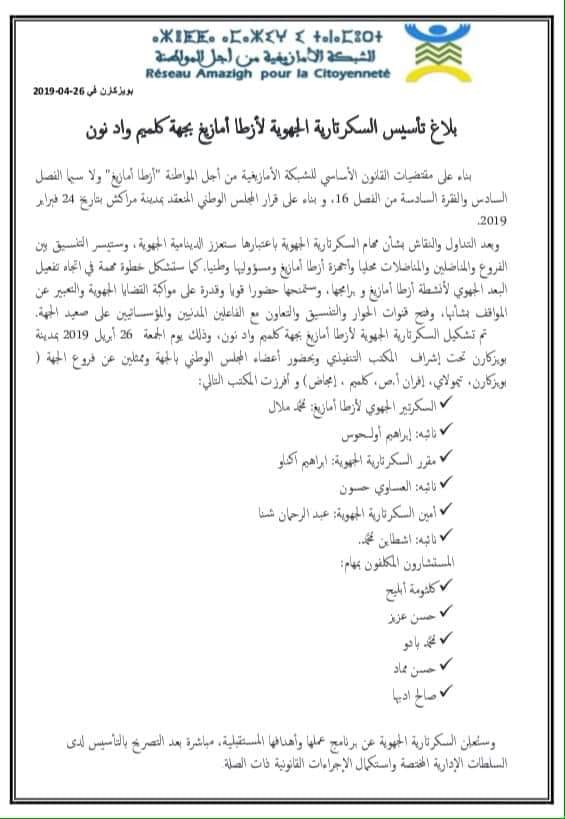 ⴰⵥⵟⵟⴰ ⴰⵎⴰⵣⵉⵖ ⵉ ⵜⴰⵏⴰⵎⵓⵔⵜ
الشبكة الأمازيغية من أجل المواطنة
Réseau Amazigh pour la Citoyenneté
بويزكارن في 26-04-2019
بلاغ تأسيس السكرتارية الجهوية لأزطا أمازيغ بجهة كلميم واد نون
بناء على مقتضيات القانون الأساسي للشبكة الأمازيغية من أجل المواطنة "أزطا أمازيغ" ولا سيما الفصل
السادس والفقرة السادسة من الفصل 16، و بناء على قرار المجلس الوطني المنعقد بمدينة مراكش بتاريخ 24 فبراير
2019.
وبعد التداول والنقاش بشأن مهام السكرتارية الجهوية باعتبارها ستعزز الدينامية الجهوية، وستيسر التنسيق بين
الفروع والمناضلين والمناضلات محليا وأجهزة أزطا أمازيغ ومسؤوليها وطنيا. كما ستشكل خطوة مهمة في اتجاه تفعيل
البعد الجهوي لأنشطة أزطا أمازيغ و برامجها، وستمنحها حضورا قويا وقدرة على مواكبة القضايا الجهوية والتعبير عن
المواقف بشأنها، وفتح قنوات الحوار والتنسيق والتعاون مع الفاعلين المدنيين والمؤسساتيين على صعيد الجهة.
تم تشكيل السكرتارية الجهوية لأزطا أمازيغ بجهة كلميم واد نون، وذلك يوم الجمعة 26 أبريل 2019 بمدينة
بويزكارن تحت إشراف المكتب التنفيذي وبحضور أعضاء المجلس الوطني بالجهة وممثلين عن فروع الجهة (
بويزكارن، تيمولاي، إفران أ.ص، كلميم ، إمجاض) و أفرزت المكتب التالي:
✓ السكرتير الجهوي لأزطا أمازيغ: محمد ملال
✓ نائبه: إبراهيم أولحوس
✓ مقرر السكرتارية الجهوية: ابراهيم أكناو
✓ نائبه: العساوي حسون
✓ أمين السكرتارية الجهوية: عبد الرحمان شنا
✓ نائبه: اشطاين محمد.
المستشارون المكلفون بمهام:
✓ كلثومة أبليح
✓ حسن عزيز
✓ محمد بادو
✓ حسن مماد
✓ صالح ادبها
وستعلن السكرتارية الجهوية عن برنامج عملها وأهدافها المستقبلية، مباشرة بعد التصريح بالتأسيس لدى
السلطات الإدارية المختصة واستكمال الإجراءات القانونية ذات الصلة.